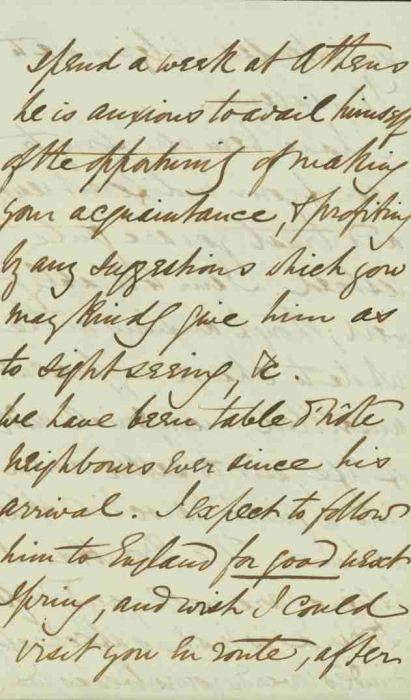 spend a week at Athens
he is anxious to avail himself
of the opportunity of making
your acquaintance, & profiting
by any suggestions which you
may kindly give him as
to sightseeing, &c.
We have been table d'hôte
neighbours ever since his
arrival. I expect to follow
him to England for good next
Spring, and wish I could
visit you en route, after